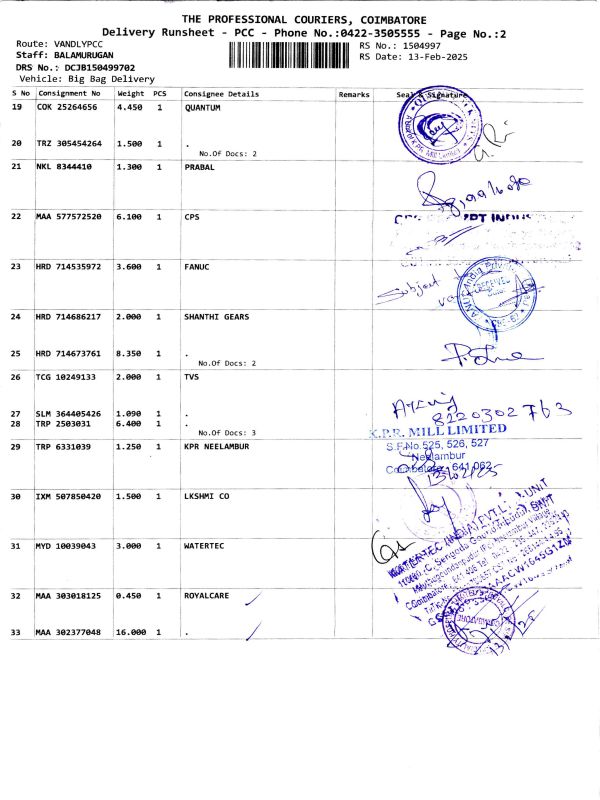 THE PROFESSIONAL COURIERS, COIMBATORE
Delivery Runsheet - PCC - Phone No.:0422-3505555 - Page No.:2
Route: VANDLYPCC RS No.: 1504997
Staff: BALAMURUGAN RS Date: 13-Feb-2025
DRS No.: DCJB150499702
Vehicle: Big Bag Delivery
S No Consignment No Weight PCS Consignee Details Remarks Seal & Signature
19 COK 25264656 4.450 1 QUANTUM
20 TRZ 305454264 1.500 1 .
No.Of Docs: 2
21 NKL 8344410 1.300 1 PRABAL
22 MAA 577572520 6.100 1 CPS
23 HRD 714535972 3.600 1 FANUC
Subject
RECEIVED
24 HRD 714686217 2.000 1 SHANTHI GEARS
25 HRD 714673761 8.350 1 .
No.Of Docs: 2
26 TCG 10249133 2.000 1 TVS
8220302763
27 SLM 364405426 1.090 1 .
28 TRP 2503031 6.400 1 .
No.Of Docs: 3
K.P.R. MILL LIMITED
29 TRP 6331039 1.250 1 KPR NEELAMBUR
S.F.No.525, 526, 527
Neelambur
Coimbatore - 641 062
13/02/25
30 IXM 507850420 1.500 1 LKSHMI CO
31 MYD 10039043 3.000 1 WATERTEC
WATERTEC (INDIA) PVT. LTD. UNIT
32 MAA 303018125 0.450 1 ROYALCARE
33 MAA 302377048 16.000 1 .